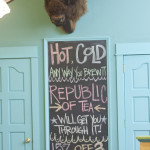 HOT. COLD
ANY WAY YOU BREW IT
REPUBLIC
OF TEA
WILL GET YOU
THROUGH IT!
15% OFF